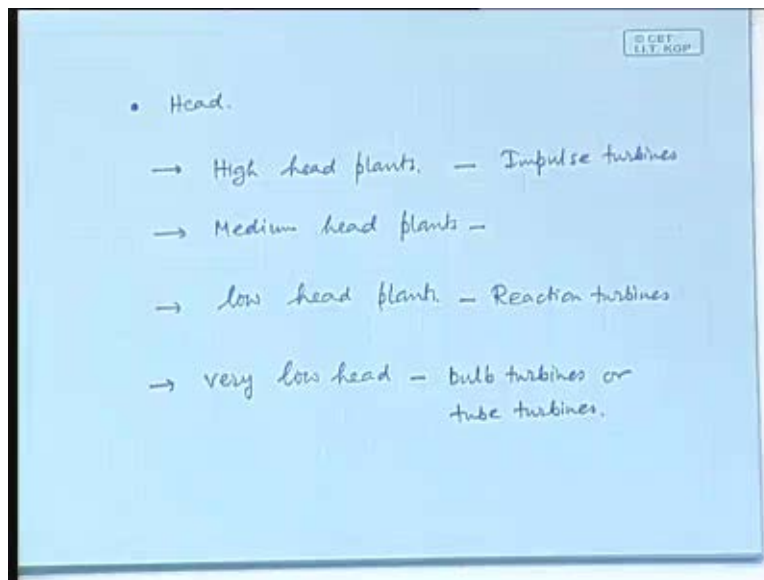 © CET
I.I.T. KGP
• Head.
→ High head plants. – Impulse turbines
→ Medium head plants –
→ low head plants. – Reaction turbines
→ very low head – bulb turbines or
tube turbines.